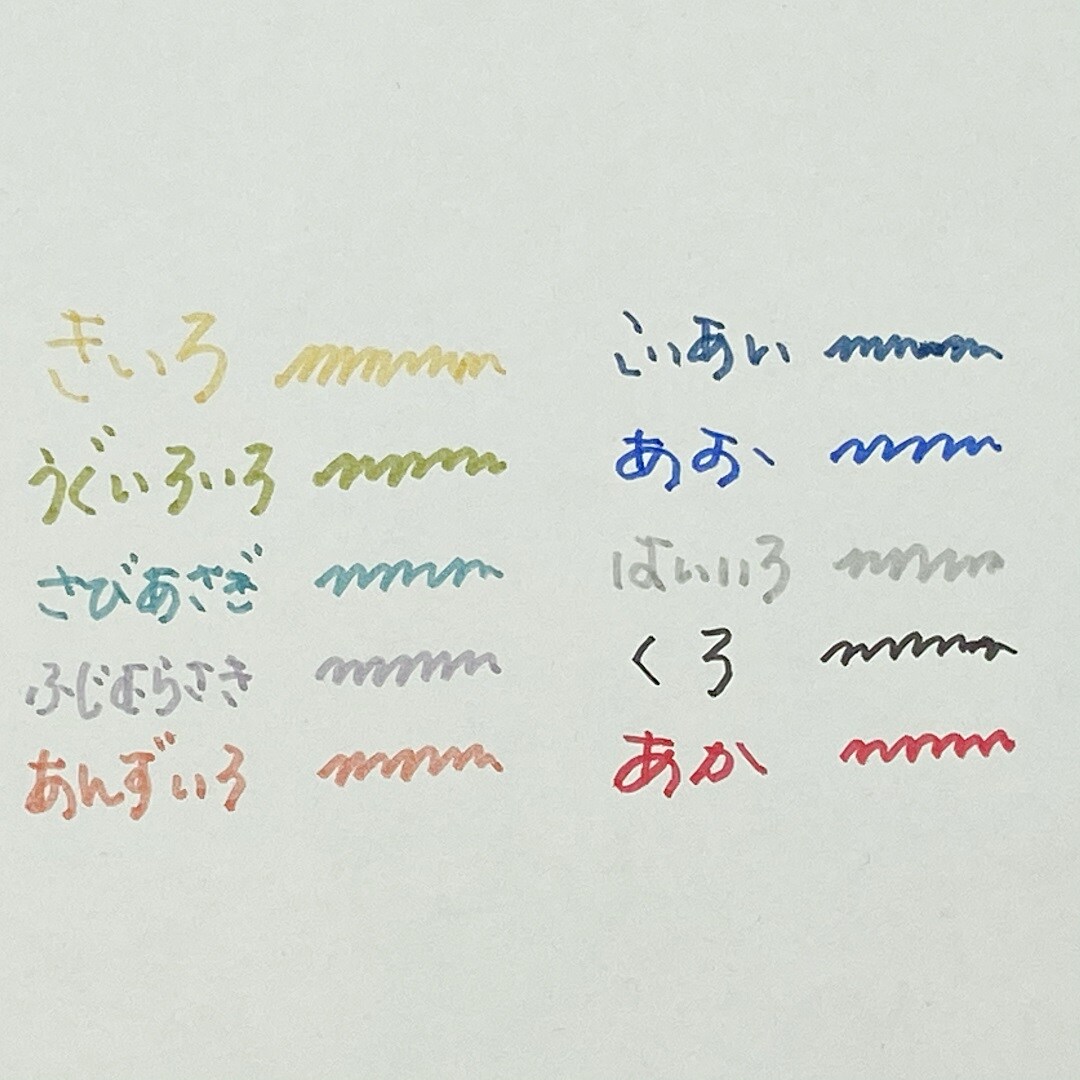 きいろ
うぐいすいろ
さびあさぎ
ふじむらさき
あんずいろ
こいあい
あお
はいいろ
くろ
あか